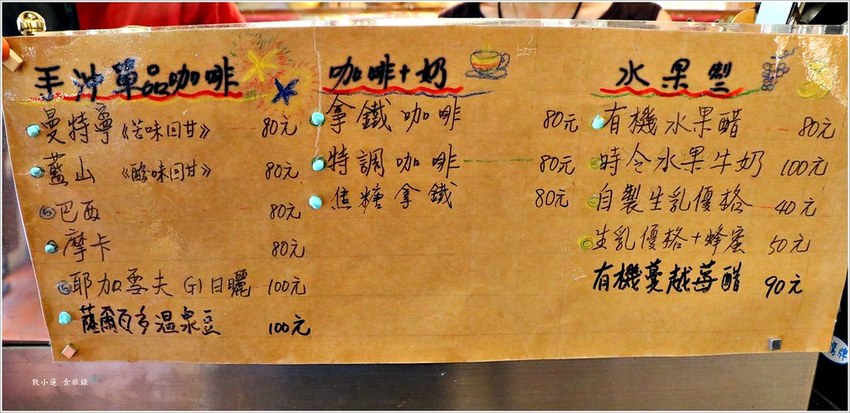 手沖單品咖啡
曼特寧《苦味回甘》 80元
藍山 《酸味回甘》 80元
巴西 80元
摩卡 80元
耶加雪夫 G1日曬 100元
薩爾瓦多溫泉豆 100元
咖啡+奶
拿鐵咖啡 80元
特調咖啡 80元
焦糖拿鐵 80元
水果型
有機水果醋 80元
時令水果牛奶 100元
自製生乳優格 40元
生乳優格+蜂蜜 50元
有機蔓越莓醋 90元
敦小蓮 食旅錄